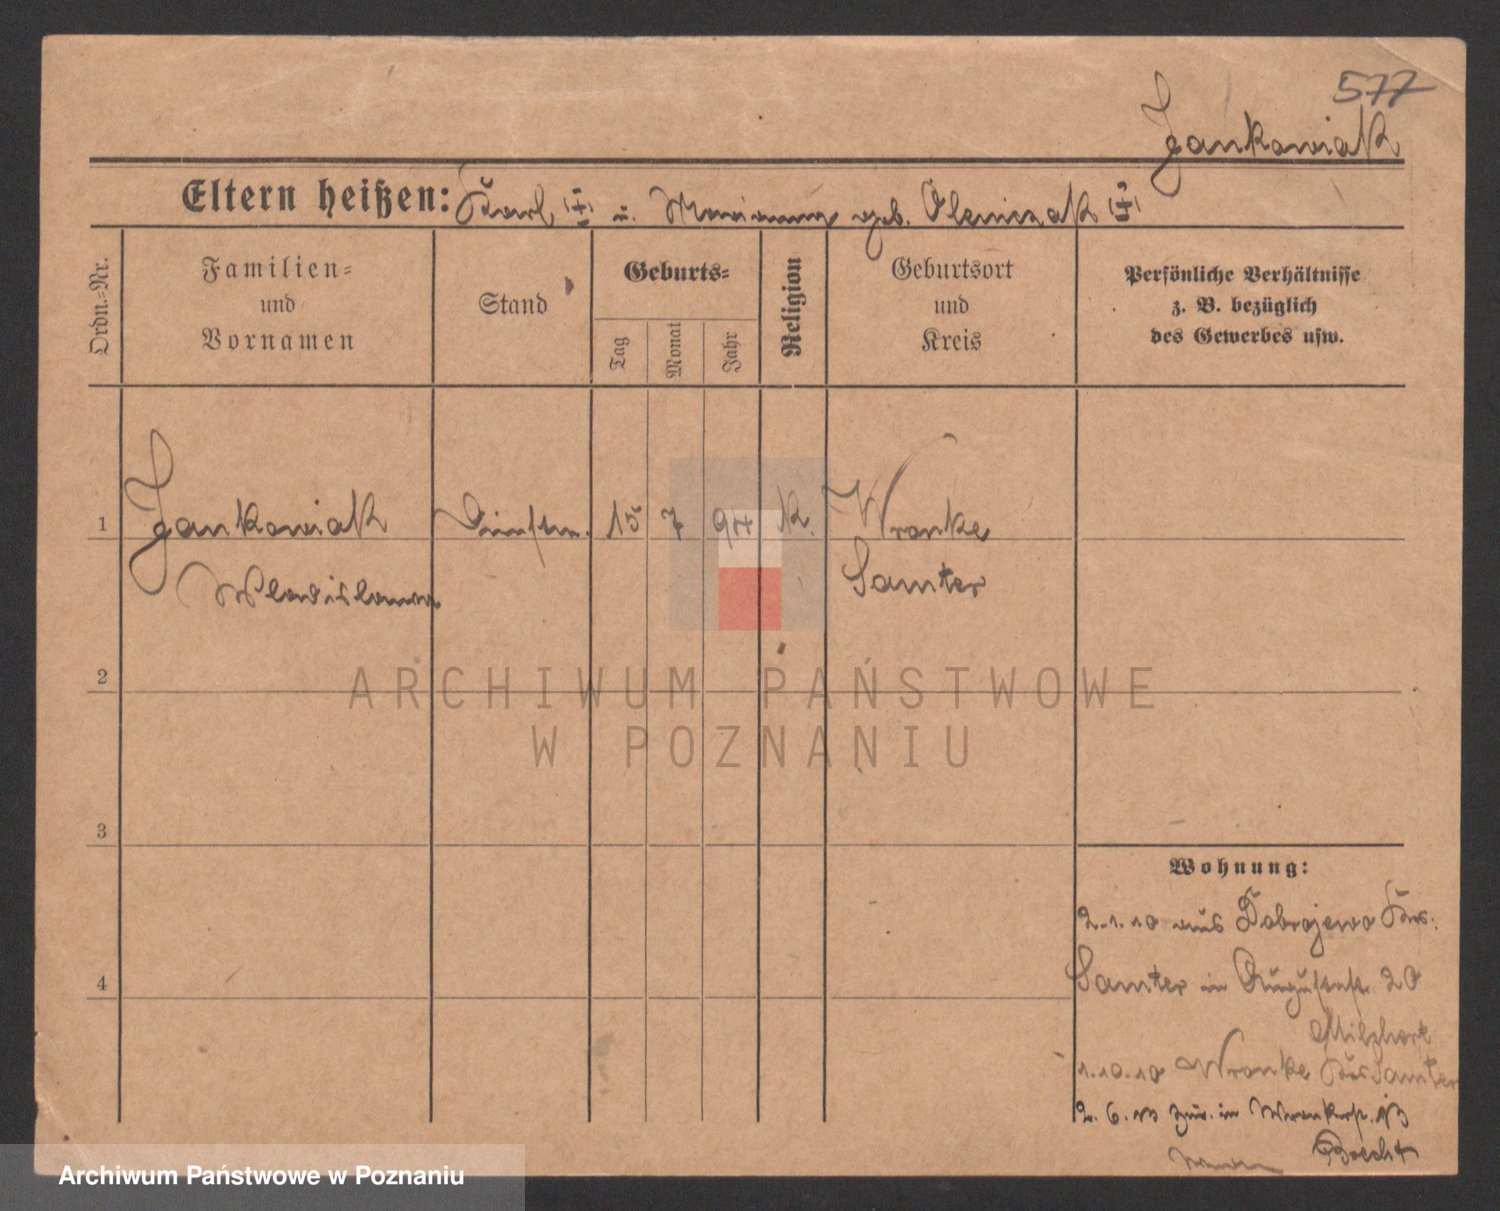 577
Jankowiak
Eltern heißen: Karl (†) u. Marianna geb. Oleniczak (†)
Ordn.-Nr.
Familien-
und
Vornamen
Stand
Geburts-
Tag
Monat
Jahr
Religion
Geburtsort
und
Kreis
Persönliche Verhältnisse
z. B. bezüglich
des Gewerbes usw.
1
Jankowiak
Wladislawa
Dienstm.
15
7
94
K.
Wronke
Samter
2
ARCHIWUM PAŃSTWOWE
W POZNANIU
3
Wohnung:
2.1.10 aus Dobrojewo Krs.
Samter in Augustastr. 20
4
1.10.10 Wronke Krs Samter
2. 6. 13 zur. in Wronkerstr. 13
Archiwum Państwowe w Poznaniu